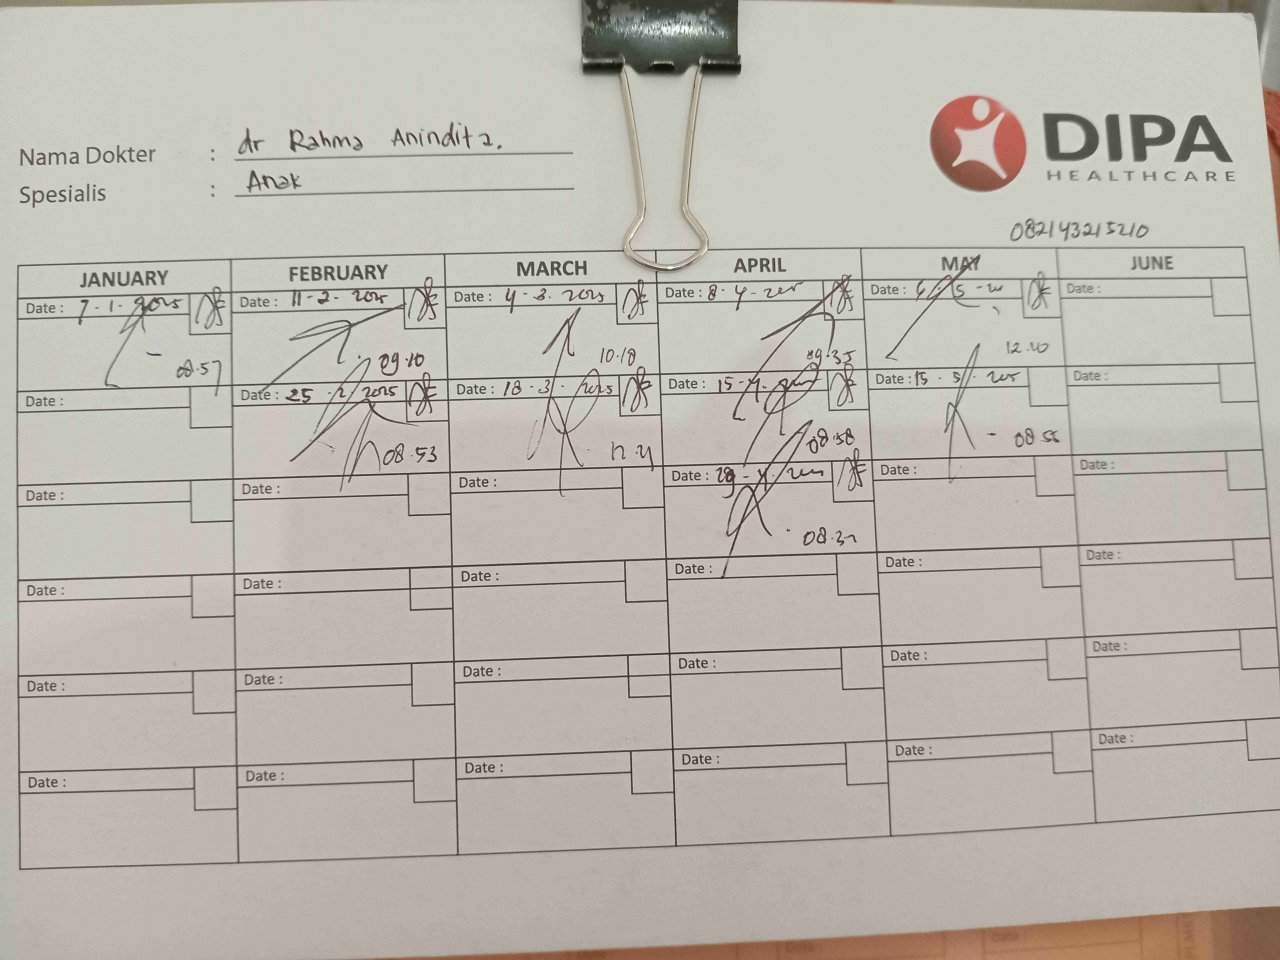 dr Rahma Anindita.
Nama Dokter :
Anak
Spesialis :
DIPA
HEALTHCARE
082143215210
JANUARY FEBRUARY MARCH APRIL MAY JUNE
Date : 7-1-2025 Date : 11-2-2025 Date : 4-3-2025 Date : 8-4- Date : Date :
08.57 09.10 10.18 09.35 12.10
Date : Date : 25-2-2025 Date : 18-3-2025 Date : 15-4- Date : 15-5- Date :
08.53 08.58 08.55
Date : Date : Date : Date : 29-4- Date : Date :
Date : Date : Date : Date : Date : Date :
Date : Date : Date : Date : Date : Date :
Date : Date : Date : Date : Date : Date :